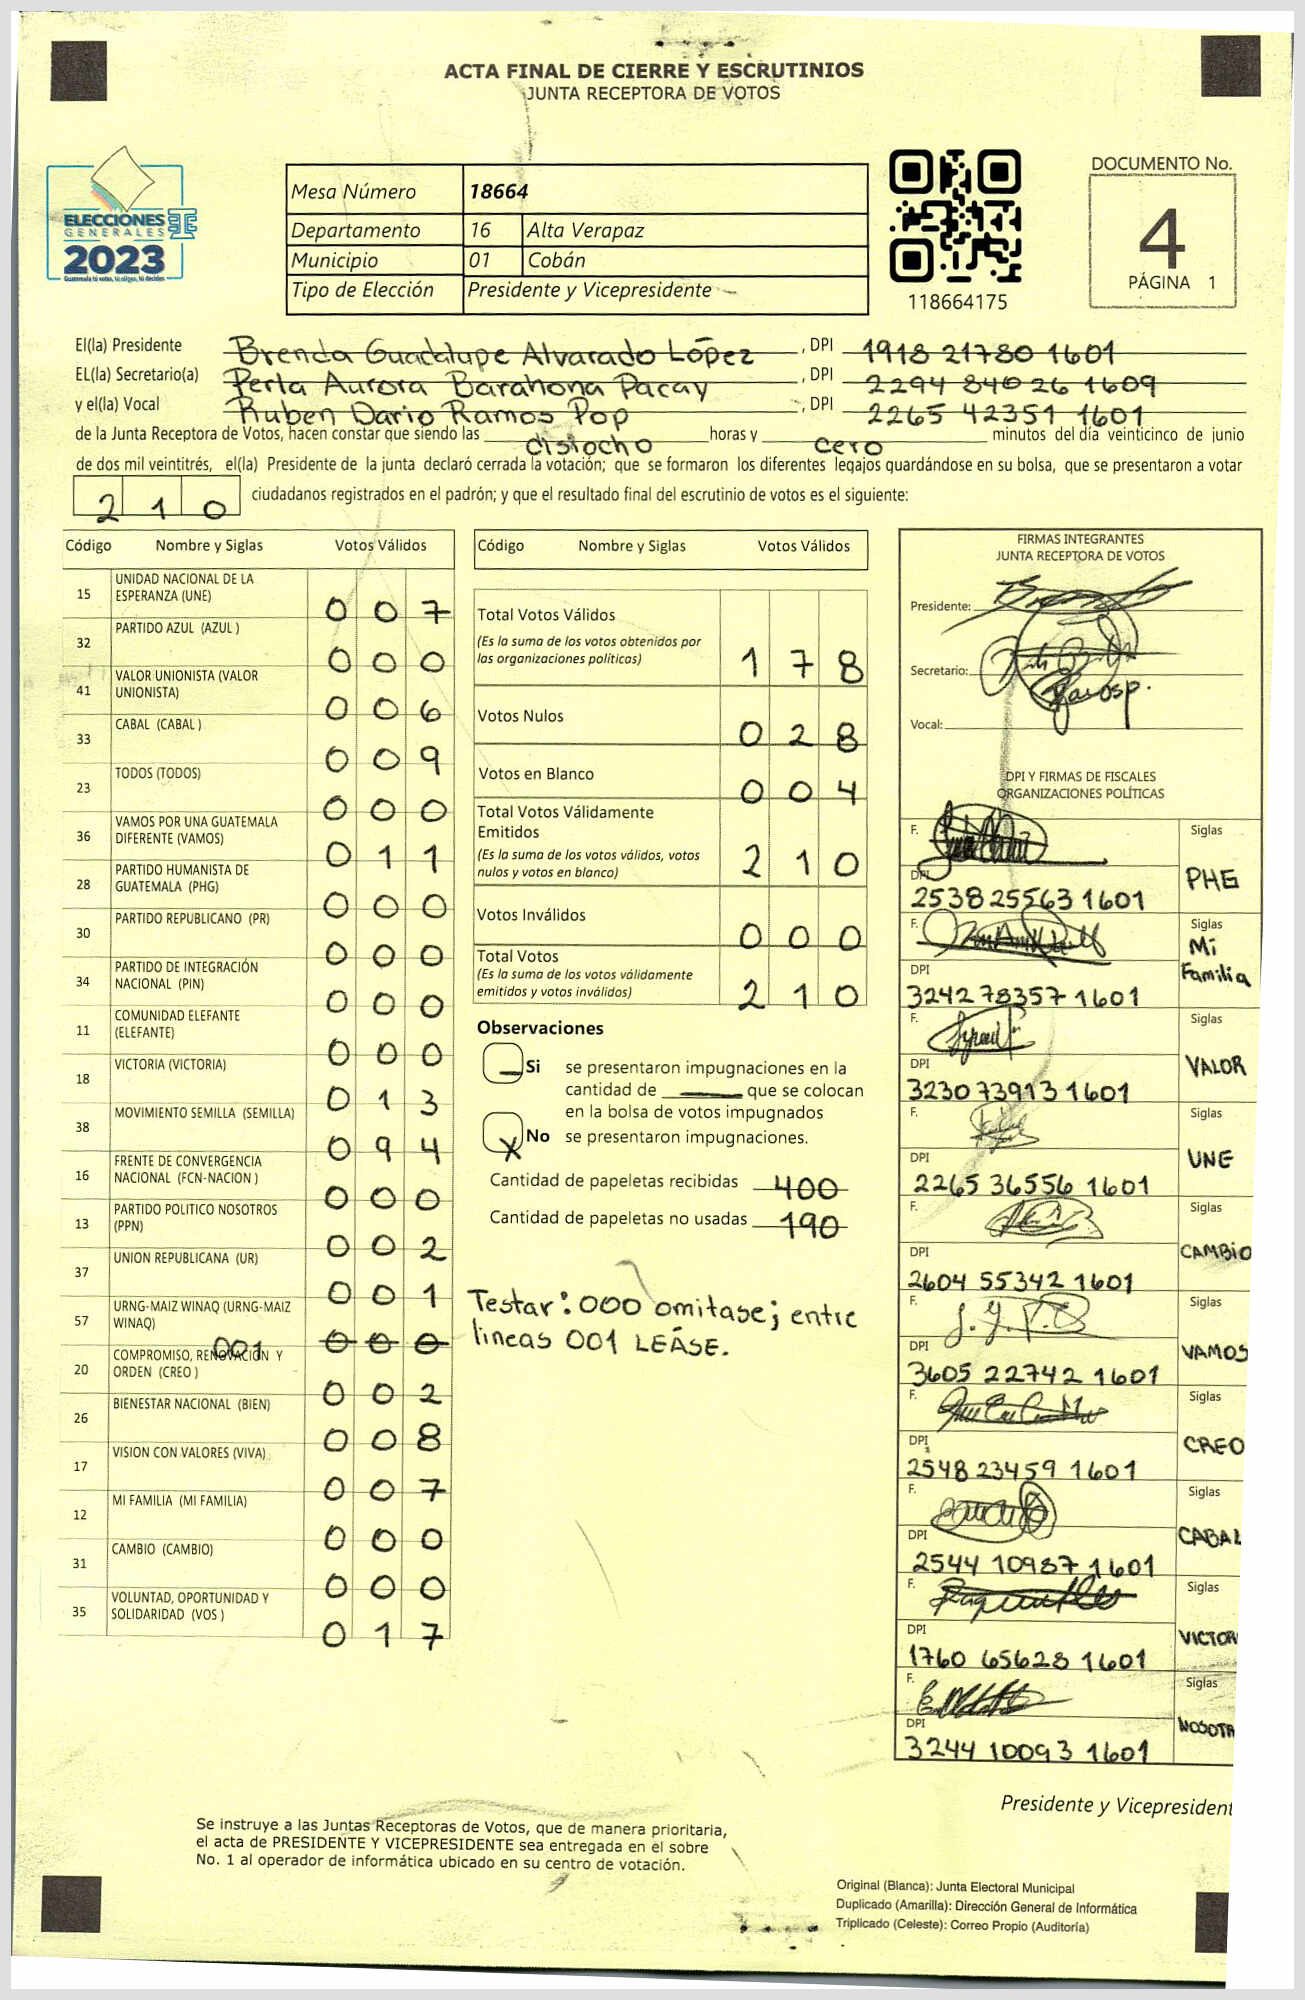 ACTA FINAL DE CIERRE Y ESCRUTINIOS
JUNTA RECEPTORA DE VOTOS
ELECCIONES
GENERALES
2023
Guatemala tú votas, tú eliges, tú decides
Mesa Número 18664
Departamento 16 Alta Verapaz
Municipio 01 Cobán
Tipo de Elección Presidente y Vicepresidente
118664175
DOCUMENTO No.
4
PÁGINA 1
El(la) Presidente Brenda Guadalupe Alvarado López , DPI 1918 21780 1601
EL(la) Secretario(a) Perla Aurora Barahona Pacay , DPI 2294 84026 1609
y el(la) Vocal Ruben Dario Ramos Pop , DPI 2265 42351 1601
de la Junta Receptora de Votos, hacen constar que siendo las disiocho horas y cero minutos del día veinticinco de junio
de dos mil veintitrés, el(la) Presidente de la junta declaró cerrada la votación; que se formaron los diferentes legajos guardándose en su bolsa, que se presentaron a votar
2 1 0 ciudadanos registrados en el padrón; y que el resultado final del escrutinio de votos es el siguiente:
Código Nombre y Siglas Votos Válidos
15 UNIDAD NACIONAL DE LA
ESPERANZA (UNE) 0 0 7
32 PARTIDO AZUL (AZUL ) 0 0 0
41 VALOR UNIONISTA (VALOR
UNIONISTA) 0 0 6
33 CABAL (CABAL ) 0 0 9
23 TODOS (TODOS) 0 0 0
36 VAMOS POR UNA GUATEMALA
DIFERENTE (VAMOS) 0 1 1
28 PARTIDO HUMANISTA DE
GUATEMALA (PHG) 0 0 0
30 PARTIDO REPUBLICANO (PR) 0 0 0
34 PARTIDO DE INTEGRACIÓN
NACIONAL (PIN) 0 0 0
11 COMUNIDAD ELEFANTE
(ELEFANTE) 0 0 0
18 VICTORIA (VICTORIA) 0 1 3
38 MOVIMIENTO SEMILLA (SEMILLA) 0 9 4
16 FRENTE DE CONVERGENCIA
NACIONAL (FCN-NACION ) 0 0 0
13 PARTIDO POLITICO NOSOTROS
(PPN) 0 0 2
37 UNION REPUBLICANA (UR) 0 0 1
57 URNG-MAIZ WINAQ (URNG-MAIZ
WINAQ) 0 0 0
001
20 COMPROMISO, RENOVACIÓN Y
ORDEN (CREO ) 0 0 2
26 BIENESTAR NACIONAL (BIEN) 0 0 8
17 VISION CON VALORES (VIVA) 0 0 7
12 MI FAMILIA (MI FAMILIA) 0 0 0
31 CAMBIO (CAMBIO) 0 0 0
35 VOLUNTAD, OPORTUNIDAD Y
SOLIDARIDAD (VOS ) 0 1 7
Código Nombre y Siglas Votos Válidos
Total Votos Válidos
(Es la suma de los votos obtenidos por
las organizaciones políticas) 1 7 8
Votos Nulos 0 2 8
Votos en Blanco 0 0 4
Total Votos Válidamente
Emitidos
(Es la suma de los votos válidos, votos
nulos y votos en blanco) 2 1 0
Votos Inválidos 0 0 0
Total Votos
(Es la suma de los votos válidamente
emitidos y votos inválidos) 2 1 0
Observaciones
Si se presentaron impugnaciones en la
cantidad de que se colocan
en la bolsa de votos impugnados
X No se presentaron impugnaciones.
Cantidad de papeletas recibidas 400
Cantidad de papeletas no usadas 190
Testar: 000 omitase; entre
lineas 001 LEÁSE.
FIRMAS INTEGRANTES
JUNTA RECEPTORA DE VOTOS
Presidente:
Secretario:
Vocal:
DPI Y FIRMAS DE FISCALES
ORGANIZACIONES POLÍTICAS
F. Siglas
DPI 2538 25563 1601 PHG
F. Siglas
DPI 3242 78357 1601 Mi
Familia
F. Siglas
DPI 3230 73913 1601 VALOR
F. Siglas
DPI 2265 36556 1601 UNE
F. Siglas
DPI 2604 55342 1601 CAMBIO
F. Siglas
DPI 3605 22742 1601 VAMOS
F. Siglas
DPI 2548 23459 1601 CREO
F. Siglas
DPI 2544 10987 1601 CABAL
F. Siglas
DPI 1760 65628 1601 VICTOR
F. Siglas
DPI 3244 10093 1601 NOSOTR
Presidente y Vicepresident
Se instruye a las Juntas Receptoras de Votos, que de manera prioritaria,
el acta de PRESIDENTE Y VICEPRESIDENTE sea entregada en el sobre
No. 1 al operador de informática ubicado en su centro de votación.
Original (Blanca): Junta Electoral Municipal
Duplicado (Amarilla): Dirección General de Informática
Triplicado (Celeste): Correo Propio (Auditoría)